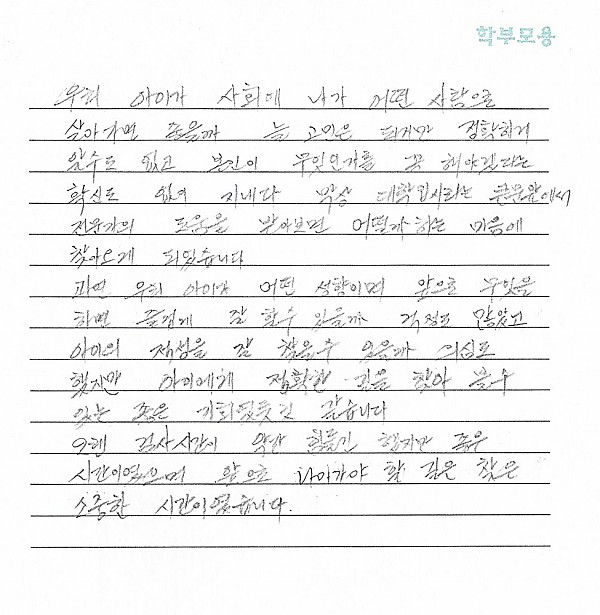 학부모용
우리 아이가 사회에 나가 어떤 사람으로
살아가면 좋을까 늘 고민은 되지만 정확하게
알수도 없고 본인이 무엇인가를 꼭 해야겠다는
확신도 없이 지내다 막상 대학입시라는 큰문앞에서
전문가의 도움을 받아보면 어떨까하는 마음에
찾아오게 되었습니다
과연 우리 아이가 어떤 성향이며 앞으로 무엇을
하면 즐겁게 잘 할수 있을까 걱정도 많았고
아이의 적성을 잘 찾을수 있을까 의심도
했지만 아이에게 정확한 길을 찾아 볼수
있는 좋은 기회였듯 같습니다
오랜 검사시간이 약간 힘들긴 했지만 좋은
시간이였으며 앞으로 나아가야 할 길은 찾은
소중한 시간이였습니다.